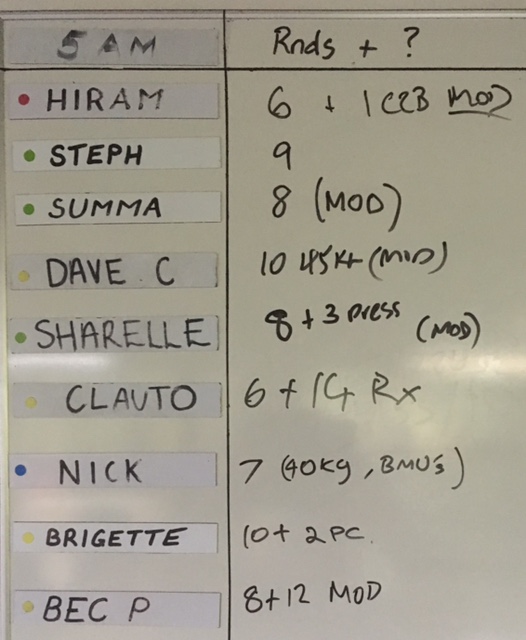 5 AM Rnds + ?
HIRAM 6 + 1 C2B MOD
STEPH 9
SUMMA 8 (MOD)
DAVE C 10 45K+ (MOD)
SHARELLE 8 + 3 press (MOD)
CLAUTO 6 + 14 Rx
NICK 7 (40kg, BMUs)
BRIGETTE 10 + 2 PC.
BEC P 8+12 MOD